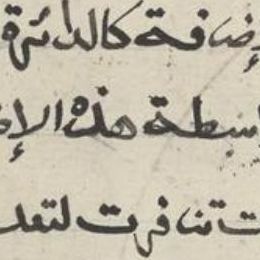 إضافة كالدائرة
اسطة هذه الإ
ت تنافرت لتعد